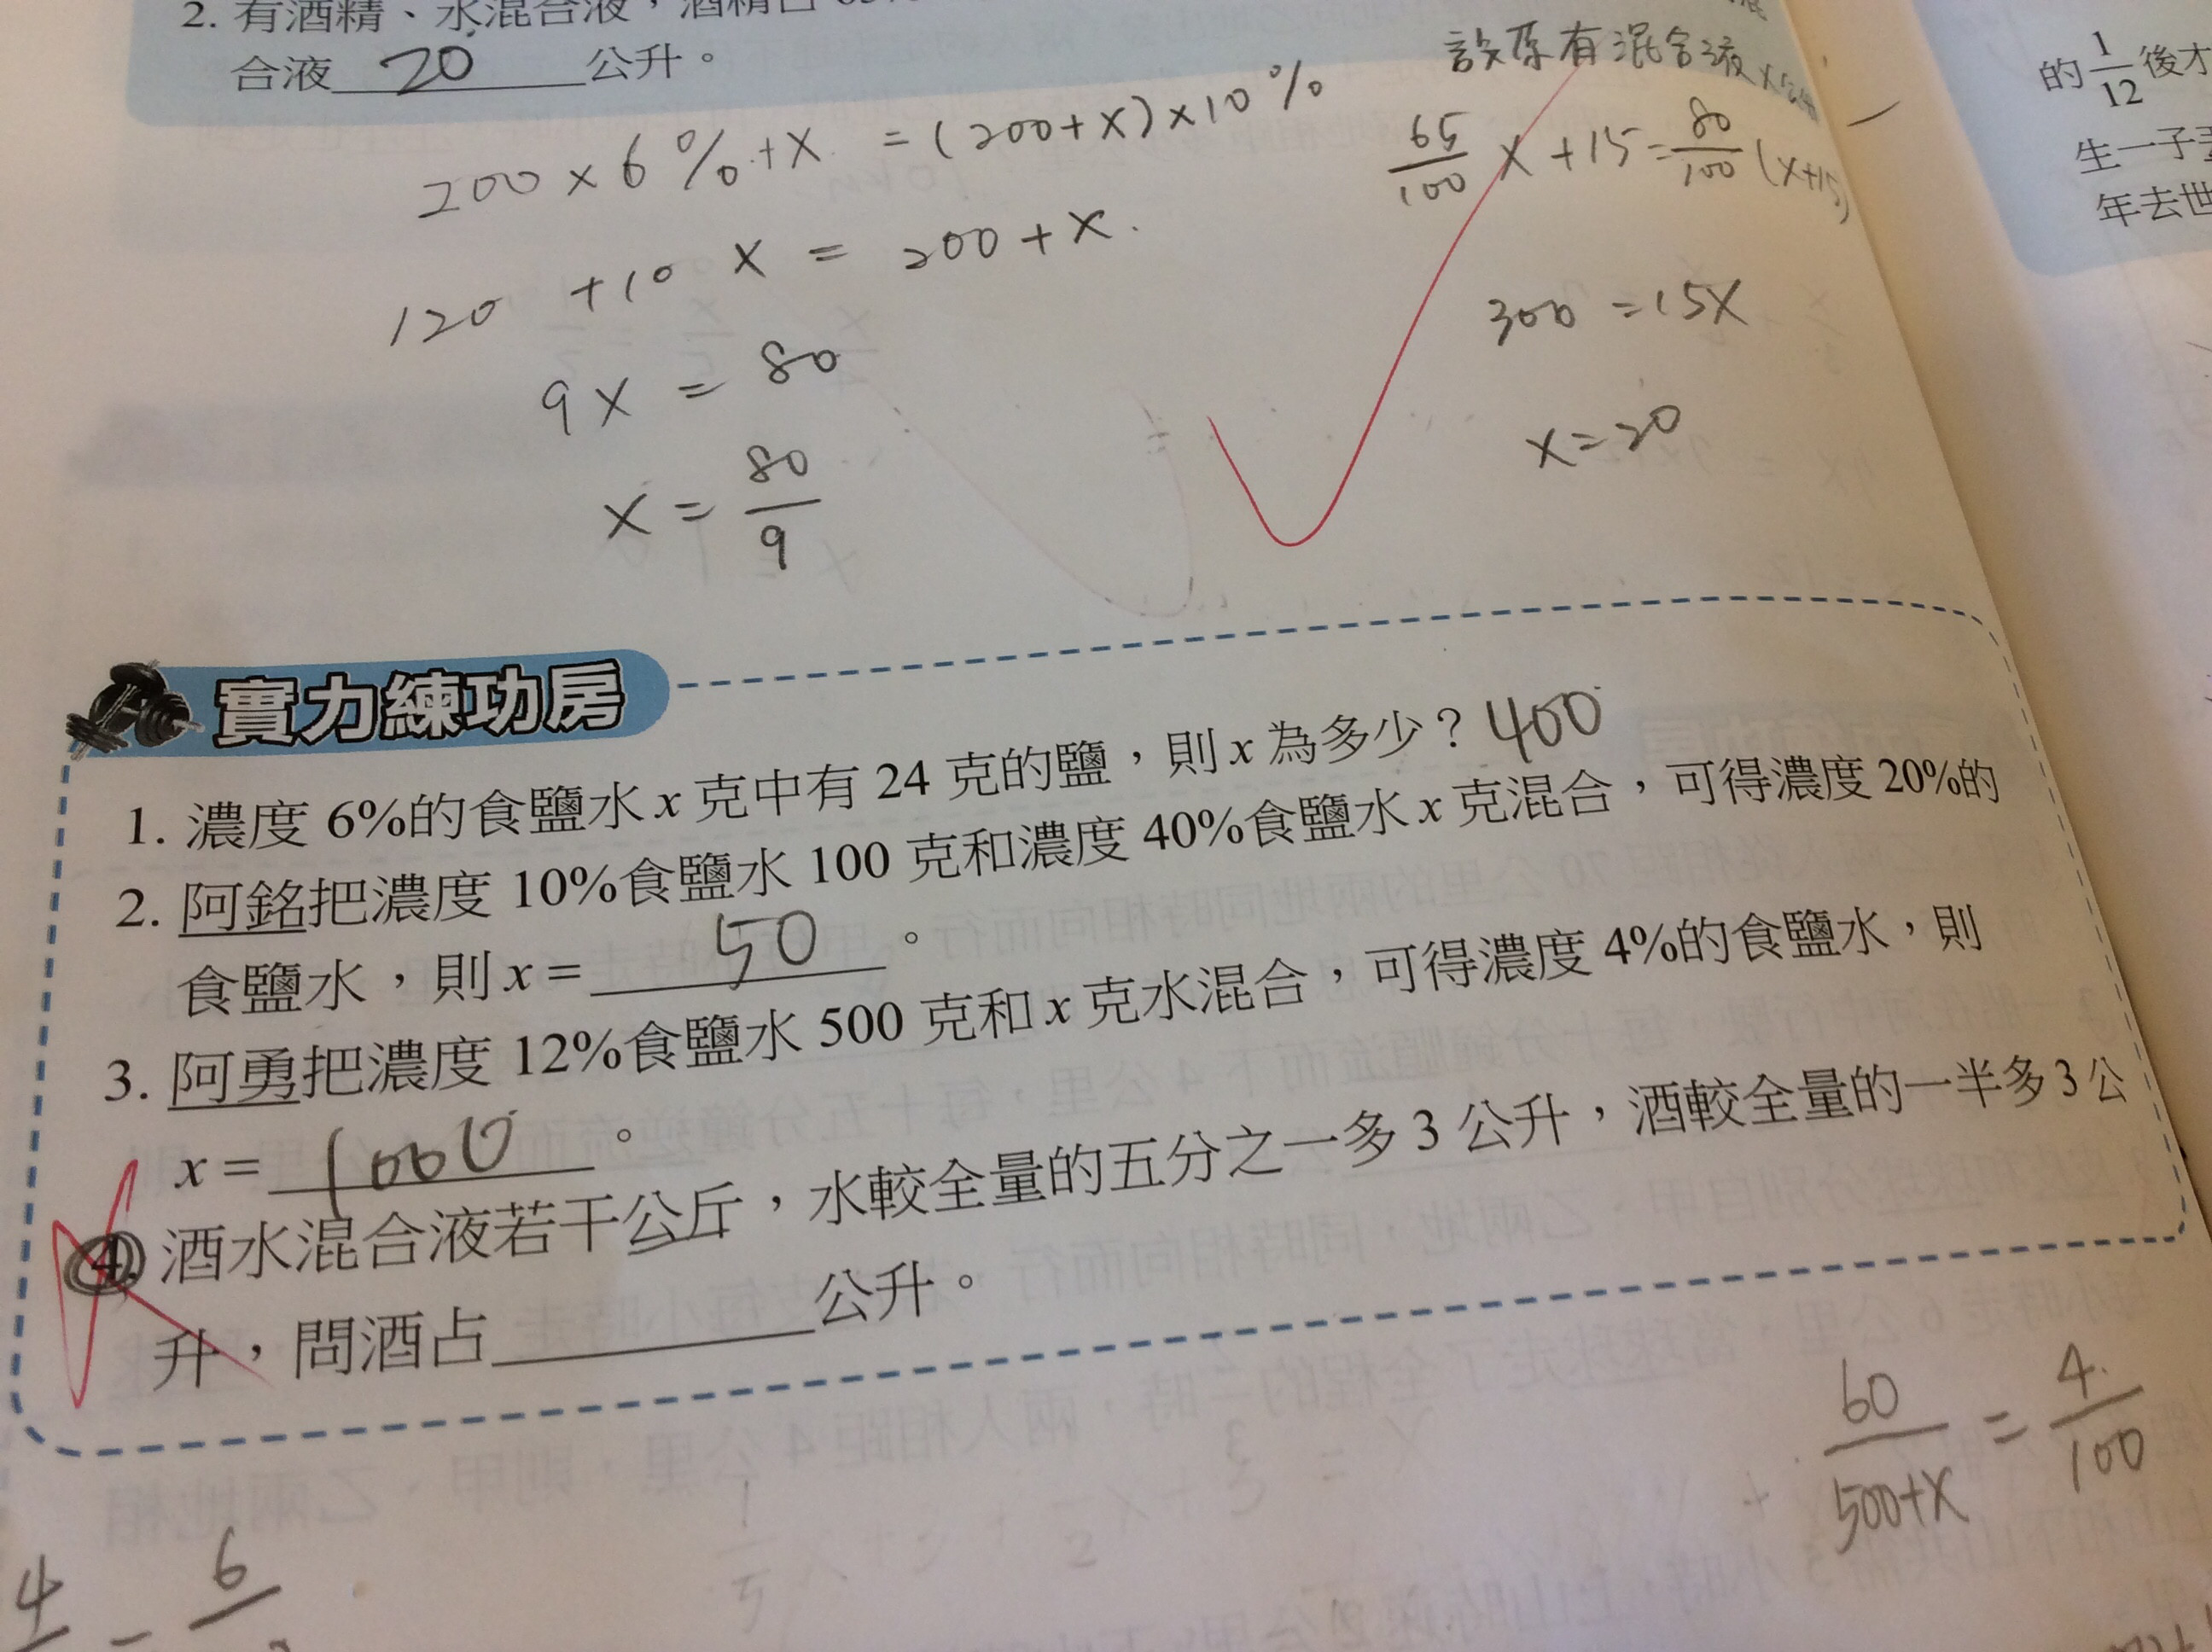 2. 有酒精、水混合液，酒精占
合液 20 公升。
設原有混合液x公升
200×6%+x = (200+x)×10%
65/100 x+15=80/100 (x+15)
120 +10 x = 200+x.
300 =15x
9x = 80
x=20
x = 80/9
實力練功房
1. 濃度 6%的食鹽水 x 克中有 24 克的鹽，則 x 為多少？400
2. 阿銘把濃度 10%食鹽水 100 克和濃度 40%食鹽水 x 克混合，可得濃度 20%的
食鹽水，則 x = 50 。
3. 阿勇把濃度 12%食鹽水 500 克和 x 克水混合，可得濃度 4%的食鹽水，則
x = 1000 。
4. 酒水混合液若干公斤，水較全量的五分之一多 3 公升，酒較全量的一半多 3 公
升，問酒占 公升。
60/500+x = 4/100
1/5 x+3+ 1/2 x+3 = x
4 = 6
的 1/12 後才
生一子
年去世